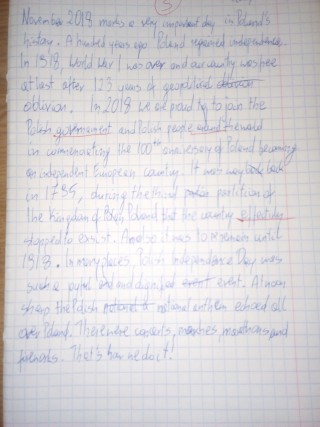 5
November 2018 marks a very important day in Poland's
history. A hundred years ago Poland regained independence.
In 1918, World War I was over and our country was free
at last after 123 years of geopolitical
oblivion. In 2018 we are proud to join the
Polish government and Polish people around the world
in commemorating the 100th anniversary of Poland becoming
an independent European country. It was way back
in 1795, during the third partition of
the Kingdom of Poland that the country
stopped to exsist. And so it was to remain until
1918. In many places, Polish Independence Day was
such a and dignified event. At noon
sharp the Polish national anthem echoed all
over Poland. There were concerts, marches, marathons and
fireworks. That's how we do it!